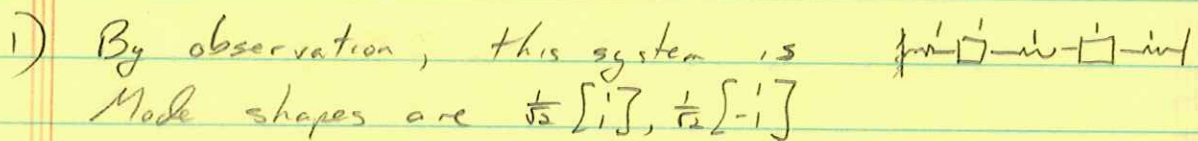 1) By observation, this system is
Mode shapes are 1/√2 [1 1], 1/√2 [1 -1]